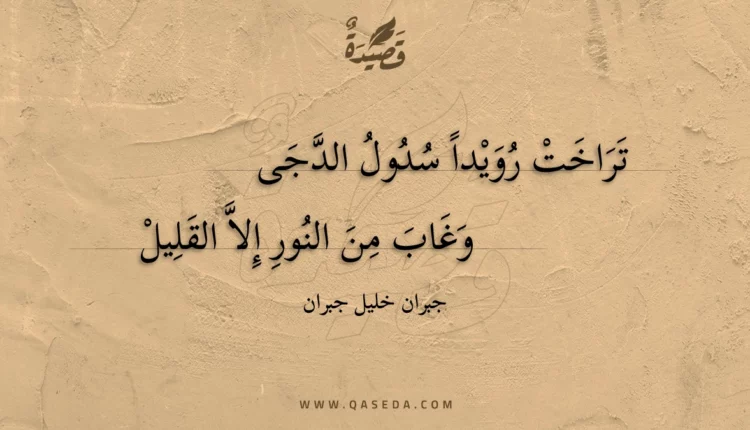 قَصِيدَةٌ
تَرَاخَتْ رُوَيْداً سُدُولُ الدَّجَى
وَغَابَ مِنَ النُورِ إِلاَّ القَلِيلْ
جبران خليل جبران
WWW.QASEDA.COM